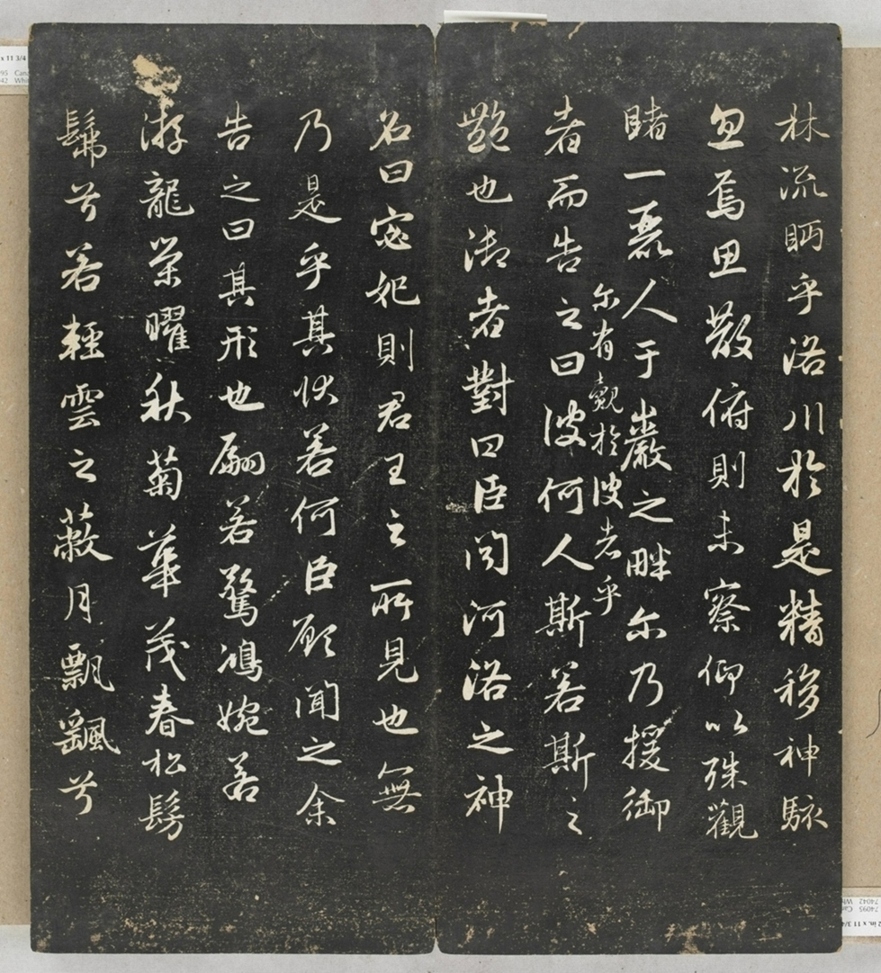 林流眄乎洛川於是精移神駭
忽焉思散俯則未察仰以殊觀
睹一麗人于巖之畔尔乃援御
尔有覿於彼者乎
者而告之曰彼何人斯若斯之
艷也御者對曰臣聞河洛之神
名曰宓妃則君王之所見也無
乃是乎其狀若何臣願聞之余
告之曰其形也翩若驚鴻婉若
游龍榮曜秋菊華茂春松髣
髴兮若輕雲之蔽月飄颻兮